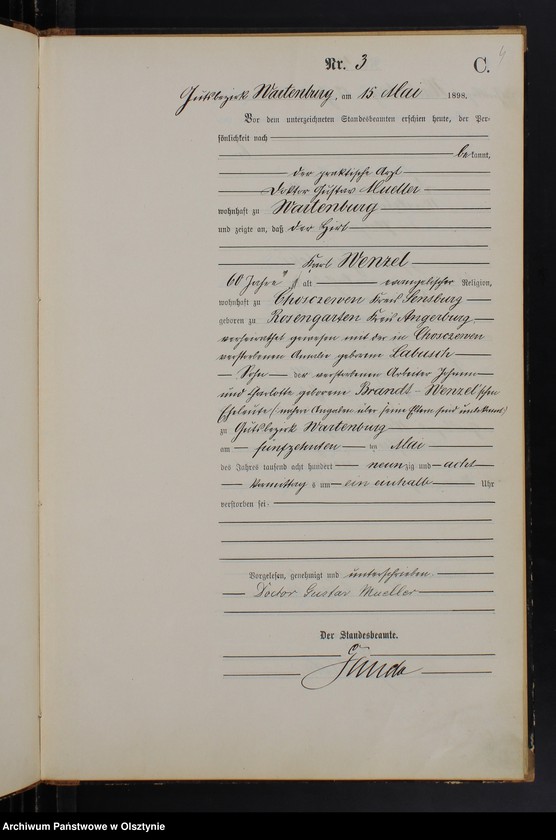 4
Nr. 3 C.
Gutsbezirk Wartenburg, am 15 Mai 1898.
Vor dem unterzeichneten Standesbeamten erschien heute, der Per-
sönlichkeit nach
bekannt,
der praktische Arzt
Doktor Gustav Mueller
wohnhaft zu Wartenburg
und zeigte an, daß der Hirt
Karl Wenzel
60 Jahre alt evangelischer Religion,
wohnhaft zu Chosczewen Kreis Sensburg
geboren zu Rosengarten Kreis Angerburg
verheirathet gewesen mit der in Chosczewen
verstorbenen Amalie geborene Labusch
Sohn der verstorbenen Arbeiter Johann
und Charlotte geborene Brandt-Wenzel'schen
Eheleute (nähere Angaben über seine Eltern sind unbekannt)
zu Gutsbezirk Wartenburg
am fünfzehnten ten Mai
des Jahres tausend acht hundert neunzig und acht
Vormittags um ein einhalb Uhr
verstorben sei.
Vorgelesen, genehmigt und unterschrieben.
Doctor Gustav Mueller
Der Standesbeamte.
Archiwum Państwowe w Olsztynie